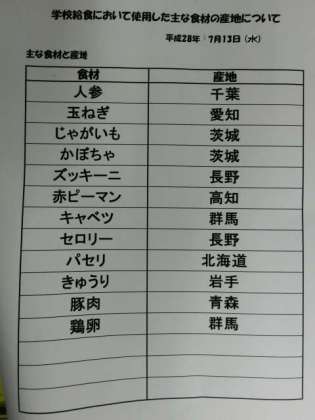 学校給食において使用した主な食材の産地について
平成28年 7月13日(水)
主な食材と産地
食材 産地
人参 千葉
玉ねぎ 愛知
じゃがいも 茨城
かぼちゃ 茨城
ズッキーニ 長野
赤ピーマン 高知
キャベツ 群馬
セロリー 長野
パセリ 北海道
きゅうり 岩手
豚肉 青森
鶏卵 群馬